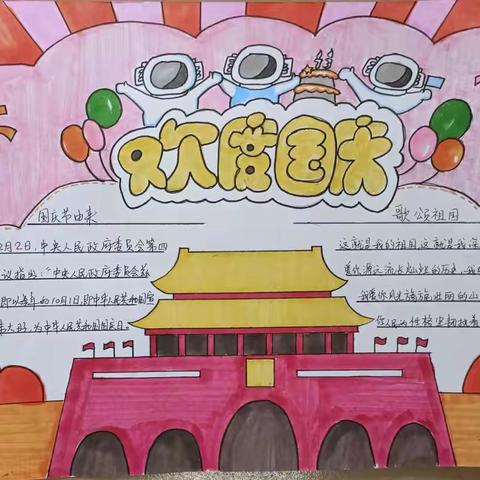 欢度国庆
国庆节由来
2月2日,中央人民政府委员会第四
议指出:"中央人民政府委员会兹
即以每年的10月1日,即中华人民共和国宣
大日,为中华人民共和国国庆日。
歌颂祖国
这就是我的祖国,这就是我深
着源远流长灿烂的历史,我
我爱你风光旖旎,壮丽的山
你人民的性格坚韧